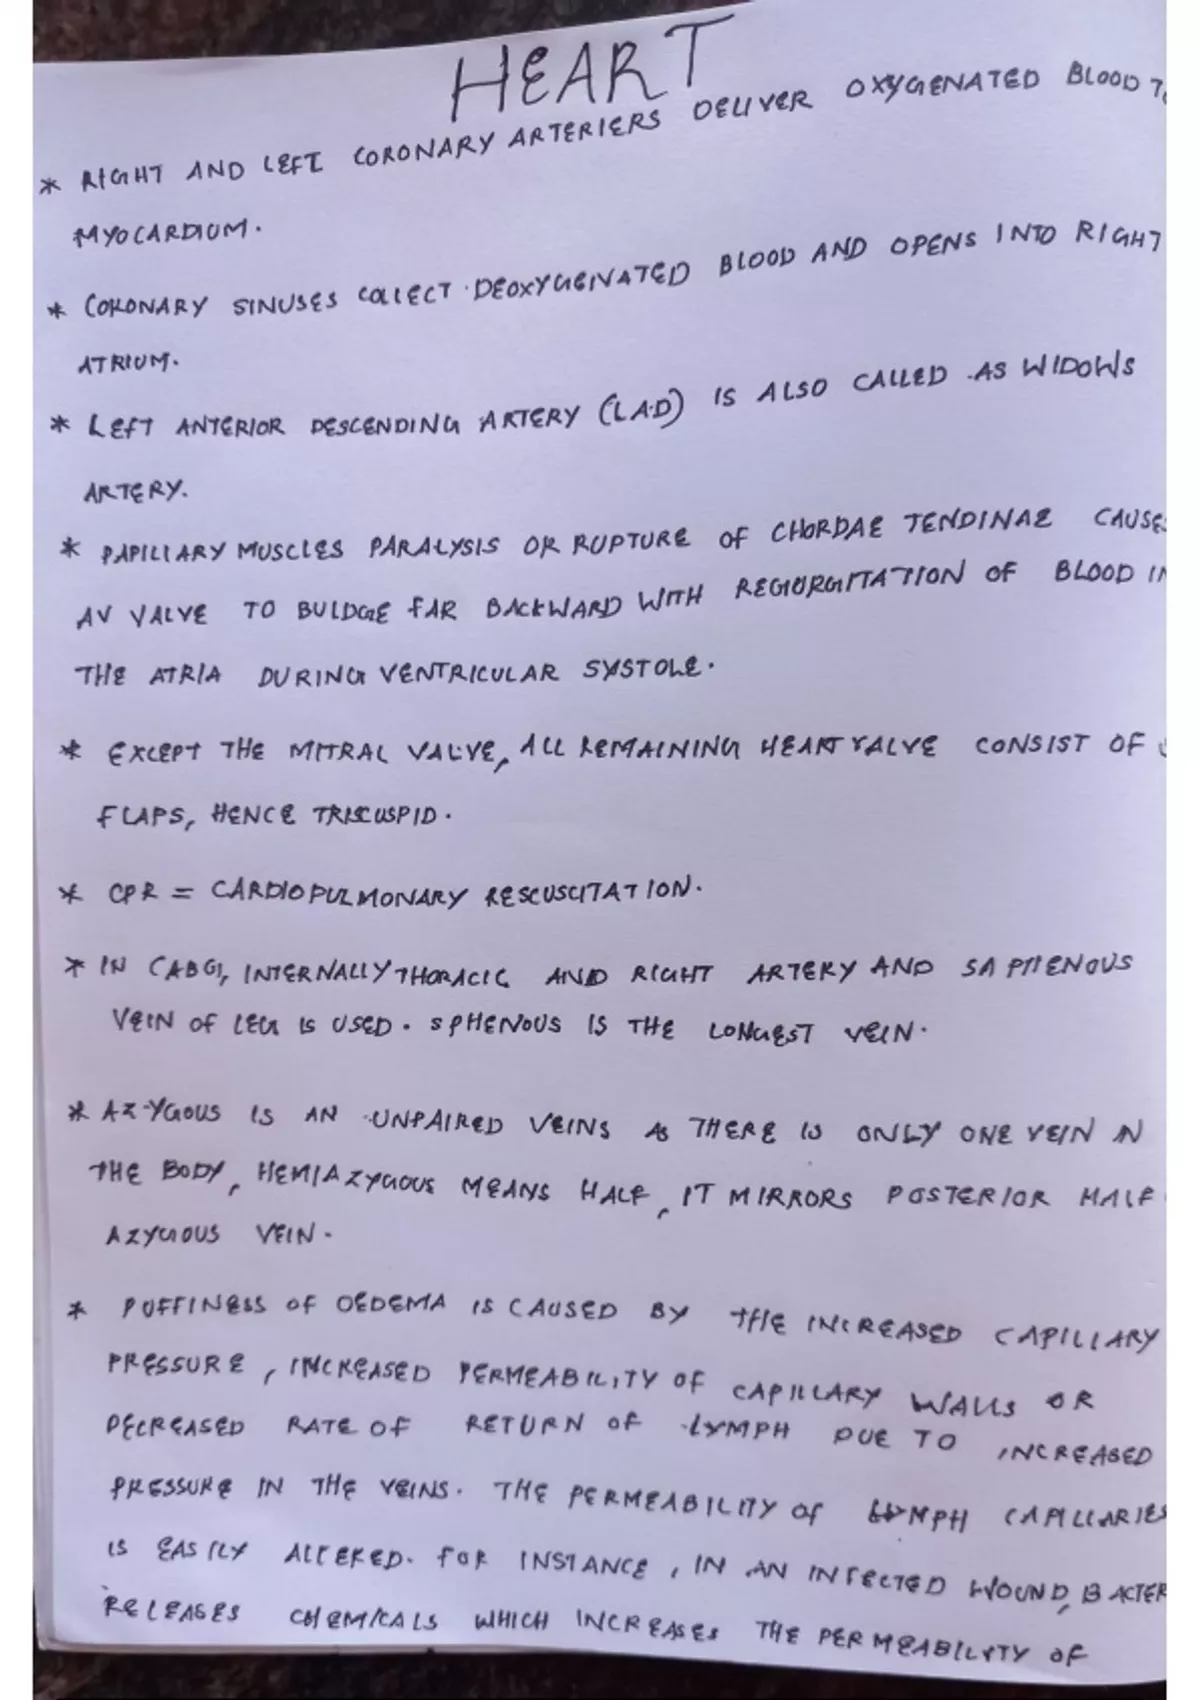 HEART
* RIGHT AND LEFT CORONARY ARTERIERS DELIVER OXYGENATED BLOOD TO
MYOCARDIUM.
* CORONARY SINUSES COLLECT DEOXYGENATED BLOOD AND OPENS INTO RIGHT
ATRIUM.
* LEFT ANTERIOR DESCENDING ARTERY (LAD) IS ALSO CALLED AS WIDOWS
ARTERY.
* PAPILLARY MUSCLES PARALYSIS OR RUPTURE OF CHORDAE TENDINAE CAUSES
AV VALVE TO BULDGE FAR BACKWARD WITH REGURGITATION OF BLOOD IN
THE ATRIA DURING VENTRICULAR SYSTOLE.
* EXCEPT THE MITRAL VALVE, ALL REMAINING HEART VALVE CONSIST OF
FLAPS, HENCE TRISCUSPID.
* CPR = CARDIOPULMONARY RESCUSCITATION.
* IN CABG, INTERNALLY THORACIC AND RIGHT ARTERY AND SAPHENOUS
VEIN OF LEG IS USED. SPHENOUS IS THE LONGEST VEIN.
* AZYGOUS IS AN UNPAIRED VEINS AS THERE IS ONLY ONE VEIN IN
THE BODY, HEMIAZYGOUS MEANS HALF, IT MIRRORS POSTERIOR HALF
AZYGOUS VEIN.
* PUFFINESS OF OEDEMA IS CAUSED BY THE INCREASED CAPILLARY
PRESSURE, INCREASED PERMEABILITY OF CAPILLARY WALLS OR
DECREASED RATE OF RETURN OF LYMPH DUE TO INCREASED
PRESSURE IN THE VEINS. THE PERMEABILITY OF LYMPH CAPILLARIES
IS EASILY ALTERED. FOR INSTANCE, IN AN INFECTED WOUND, BACTER
RELEASES CHEMICALS WHICH INCREASES THE PERMEABILITY OF